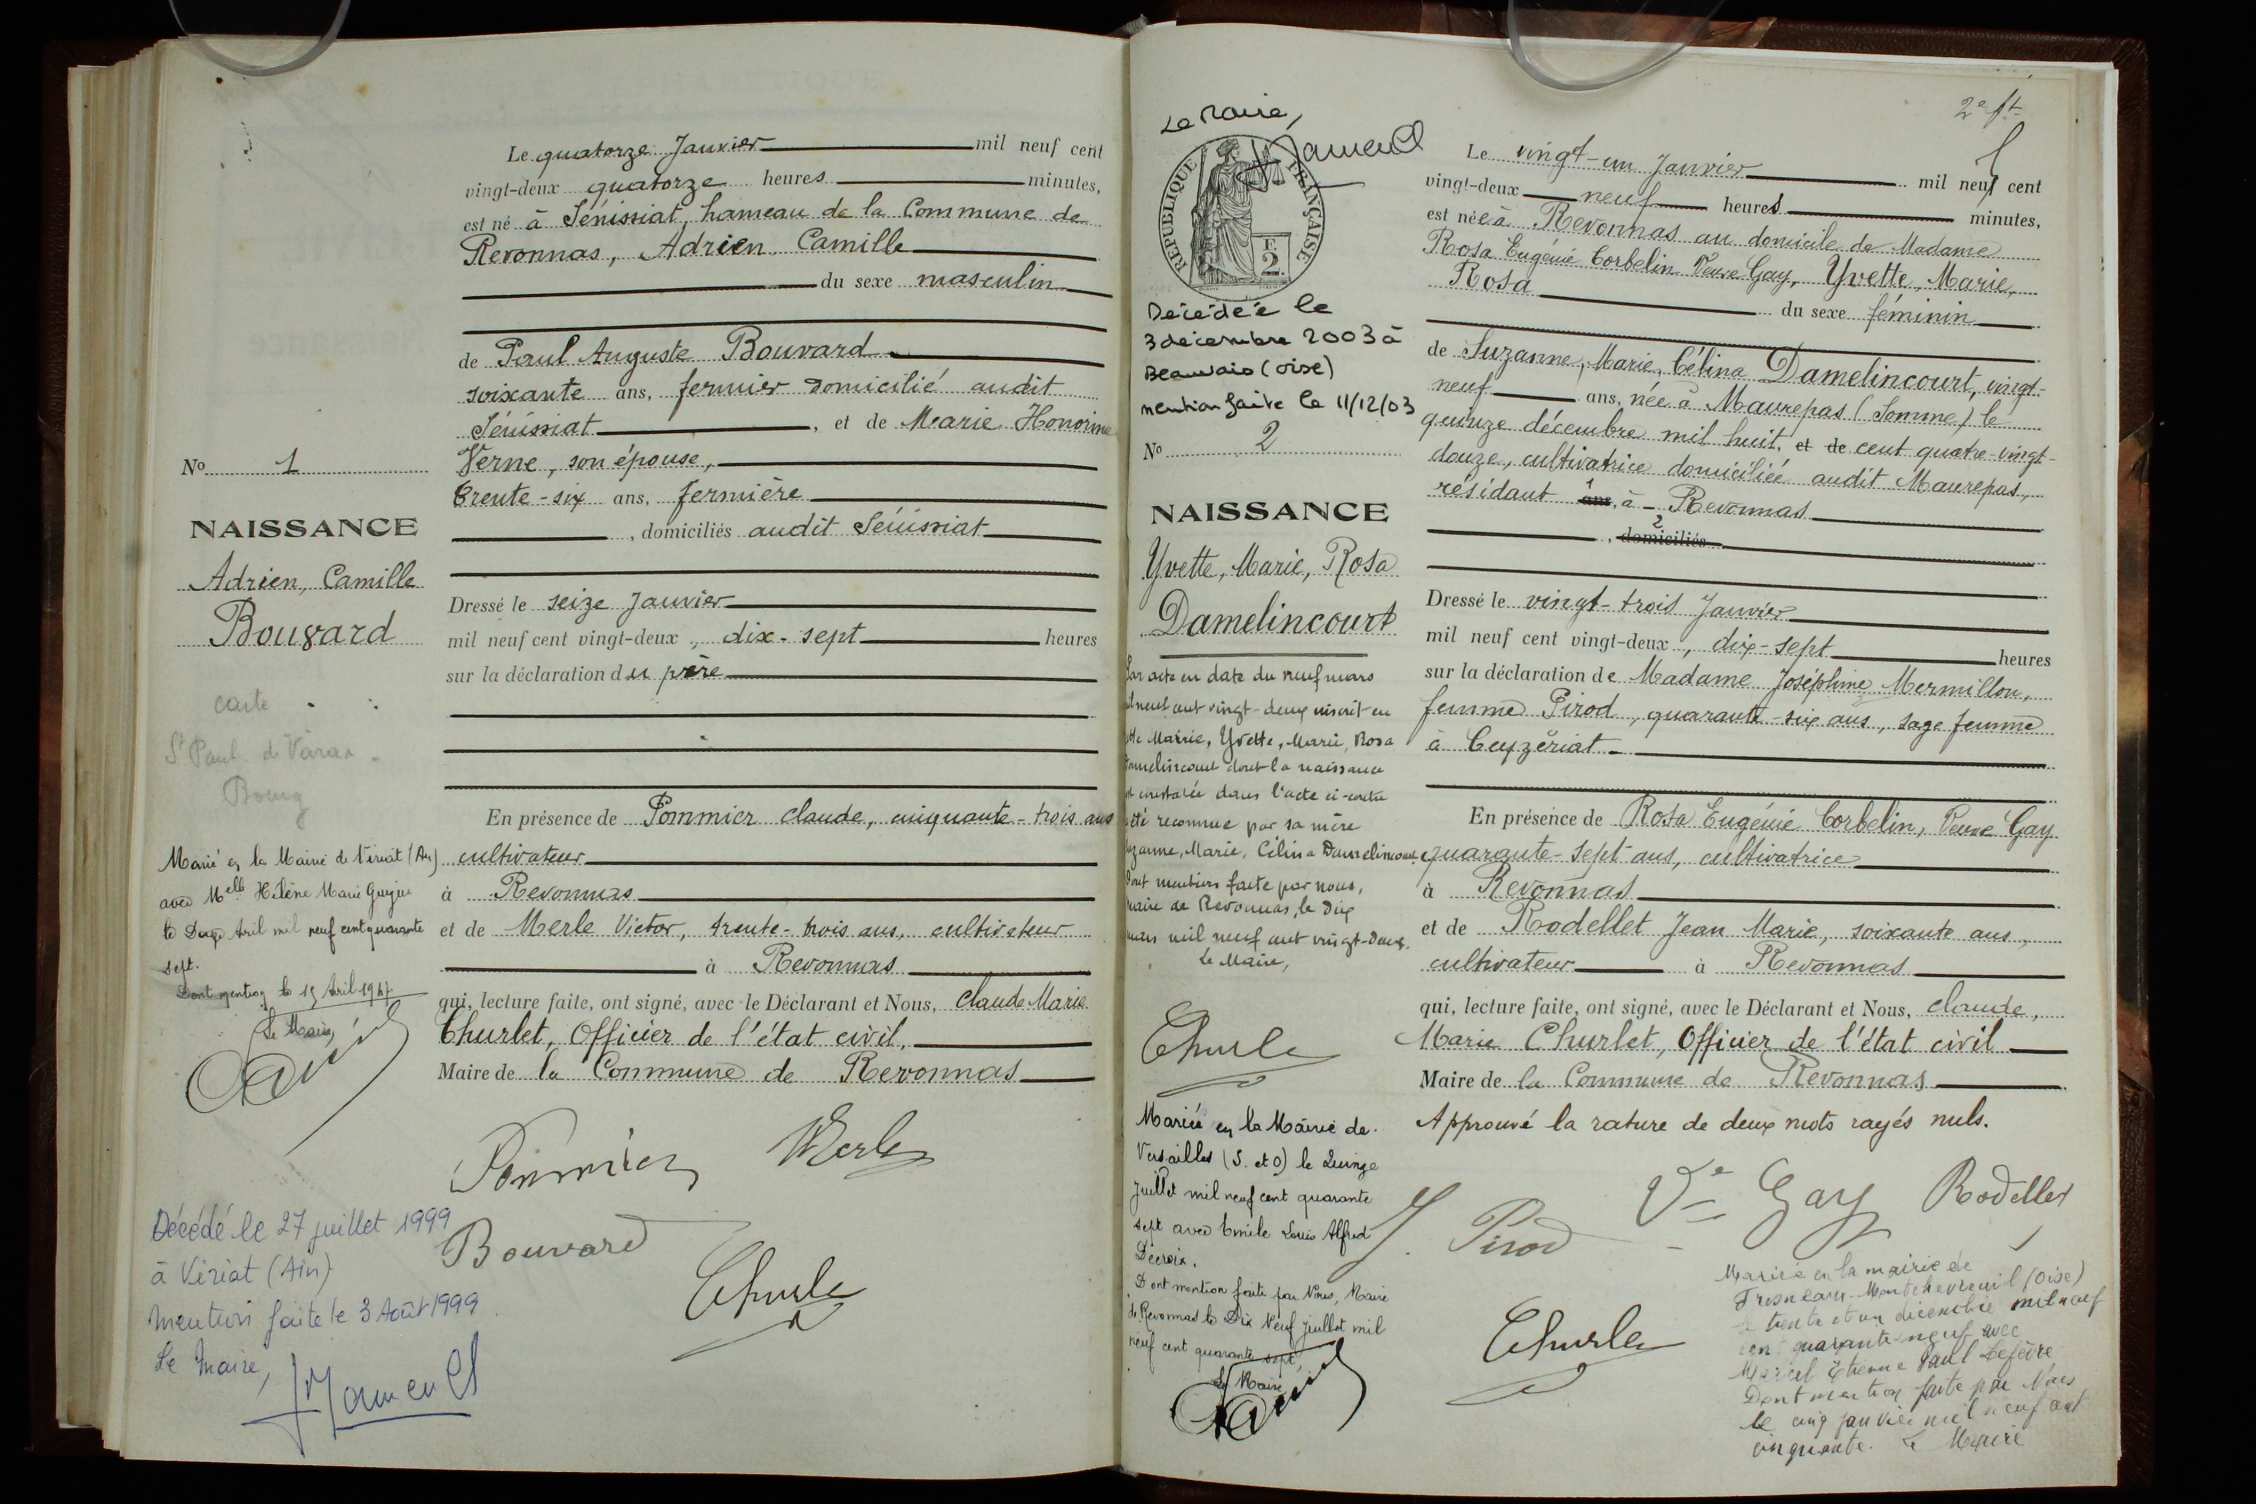 Le quatorze Janvier mil neuf cent
vingt-deux quatorze heures minutes,
est né à Sénissiat, hameau de la Commune de
Revonnas, Adrien Camille
du sexe masculin
de Paul Auguste Bouvard
soixante ans, fermier domicilié audit
Sénissiat, et de Marie Honorine
Verne, son épouse,
trente-six ans, fermière
, domiciliés audit Sénissiat
Dressé le seize Janvier
mil neuf cent vingt-deux, dix-sept heures
sur la déclaration du père
En présence de Pommier claude, cinquante-trois ans
cultivateur
à Revonnas
et de Merle Victor, trente-trois ans, cultivateur
à Revonnas
qui, lecture faite, ont signé, avec le Déclarant et Nous, Claude Marie
Churlet, Officier de l'état civil,
Maire de la Commune de Revonnas
Pommier Merle
Bouvard
Churle
No 1
NAISSANCE
Adrien, Camille
Bouvard
carte
St Paul de Varax
Bourg
Marié en la Mairie de Viriat (Ain)
avec Melle Hélène Marie
le Douze Avril mil neuf cent quarante
sept.
Dont mention le 15 Avril 1947
Le Maire,
Décédé le 27 juillet 1999
à Viriat (Ain)
mention faite le 3 Août 1999
Le Maire,
2e ft
Le Maire,
RÉPUBLIQUE FRANÇAISE
F.
2
Décédée le
3 décembre 2003 à
Beauvais (Oise)
mention faite le 11/12/03
No 2
NAISSANCE
Yvette, Marie, Rosa
Damelincourt
Par acte en date du neuf mars
mil neuf cent vingt-deux inscrit en
cette Mairie, Yvette, Marie, Rosa
Damelincourt dont la naissance
est constatée dans l'acte ci-contre
a été reconnue par sa mère
Suzanne, Marie, Célina Damelincourt.
Dont mention faite par nous,
maire de Revonnas, le dix
mars mil neuf cent vingt-deux.
Le Maire,
Churle
Mariée en la Mairie de
Versailles (S. et O) le Quinze
Juillet mil neuf cent quarante
sept avec Emile Louis Alfred
Décroix.
Dont mention faite par Nous, Maire
de Revonnas le Dix Neuf Juillet mil
neuf cent quarante sept,
Le Maire
Le vingt-un Janvier mil neuf cent
vingt-deux neuf heures minutes,
est née à Revonnas au domicile de Madame
Rosa Eugénie Corbelin Veuve Gay, Yvette, Marie,
Rosa
du sexe féminin
de Suzanne, Marie, Célina Damelincourt, vingt-
neuf ans, née à Maurepas (Somme) le
quinze décembre mil huit et de cent quatre-vingt-
douze, cultivatrice domiciliée audit Maurepas,
résidant 1 ans, à Revonnas
2
, domiciliés
Dressé le vingt-trois Janvier
mil neuf cent vingt-deux, dix-sept heures
sur la déclaration de Madame Joséphine Mermillon,
femme Pirod, quarante-six ans, sage femme
à Ceyzériat
En présence de Rosa Eugénie Corbelin, Veuve Gay
quarante-sept ans, cultivatrice
à Revonnas
et de Rodellet Jean Marie, soixante ans,
cultivateur à Revonnas
qui, lecture faite, ont signé, avec le Déclarant et Nous, claude,
Marie Churlet, Officier de l'état civil
Maire de la Commune de Revonnas
Approuvé la rature de deux mots rayés nuls.
J. Pirod Ve Gay Rodellet
Churle
Mariée en la mairie de
Fresneaux-Montchevreuil (Oise)
le trente et un décembre mil neuf
cent quarante neuf avec
Marcel Etienne Paul Lefèvre
Dont mention faite par Nous
le cinq janvier mil neuf cent
cinquante. Le Maire